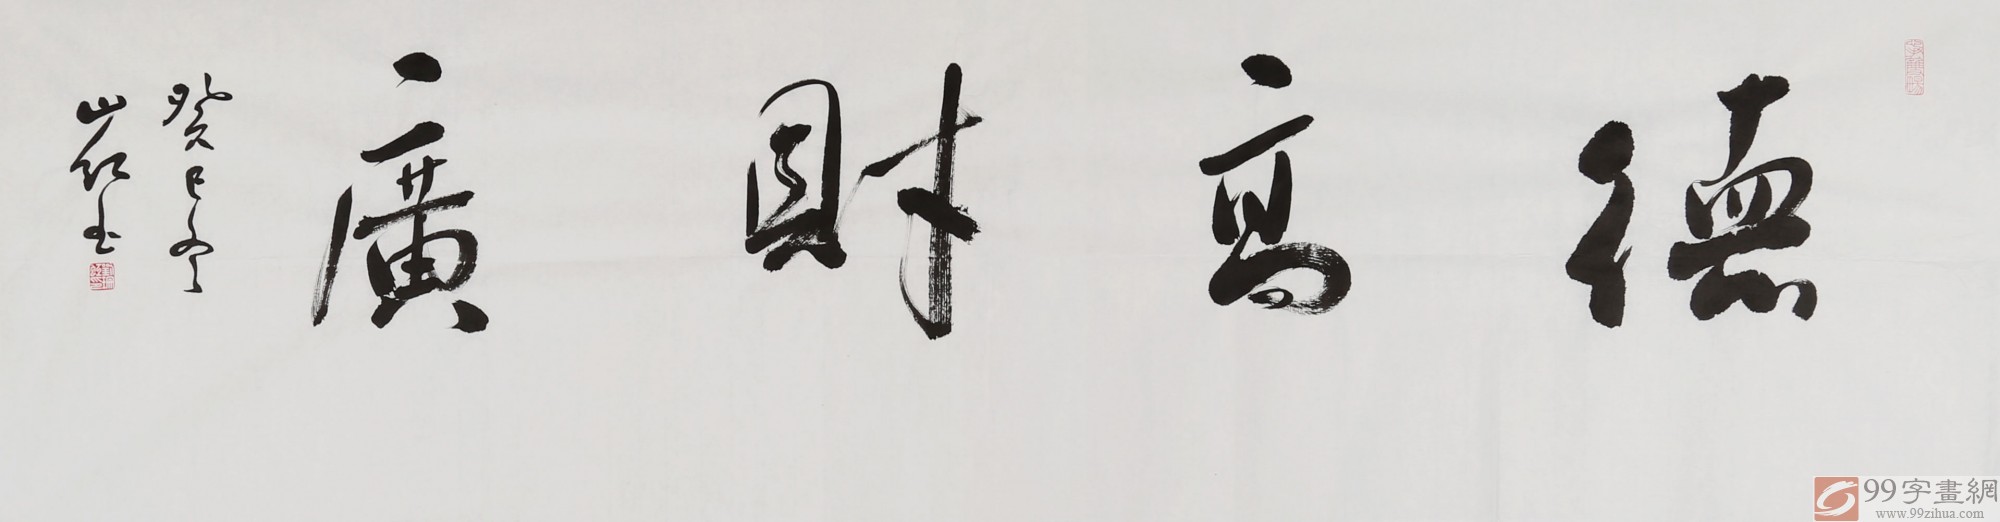 德高財廣
癸巳冬
山红书
99字畫網
www.99zihua.com